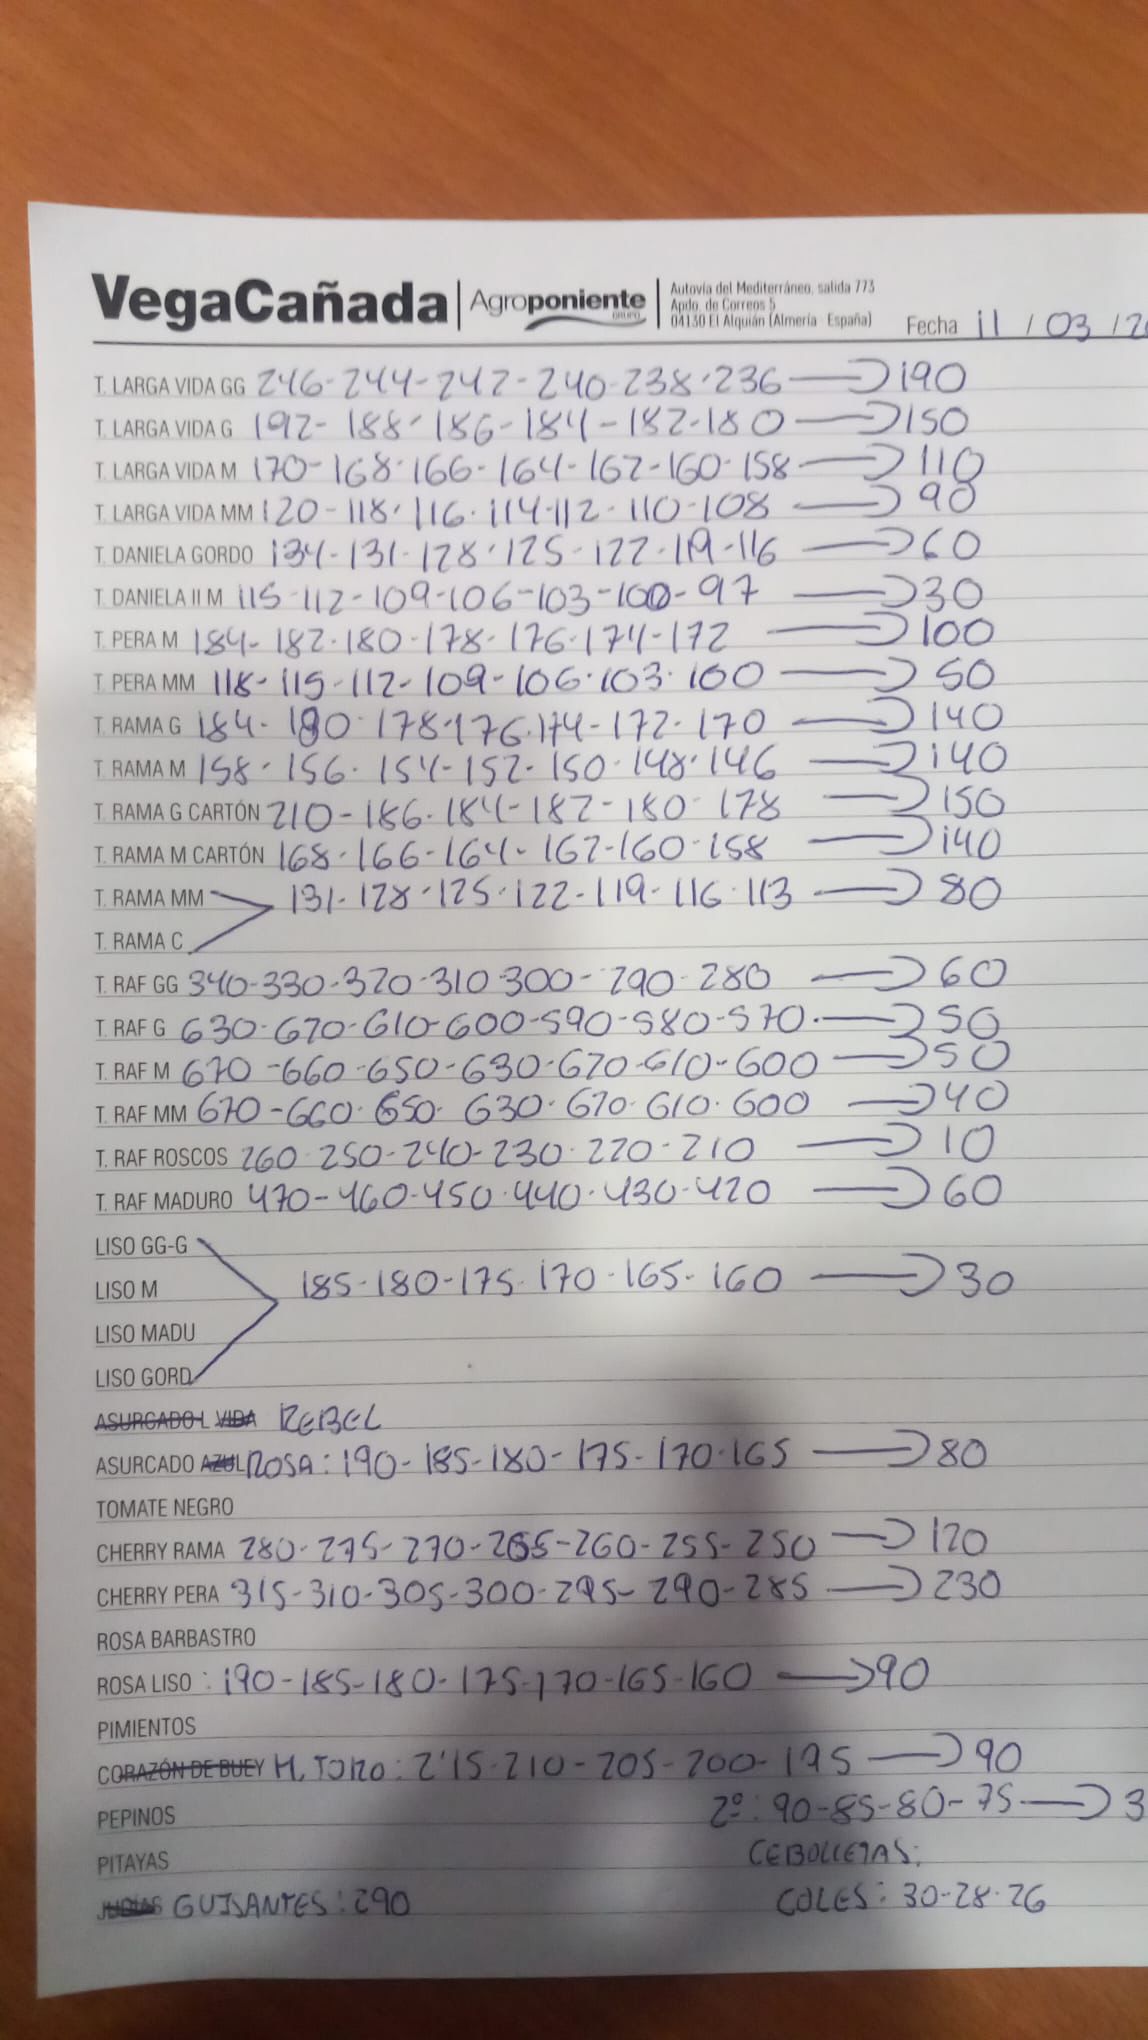 VegaCañada Agroponiente GRUPO
Autovía del Mediterráneo, salida 773
Apdo. de Correos 5
04130 El Alquián (Almería España)
Fecha 11 / 03 / 2
T. LARGA VIDA GG 246-244-242-240-238-236 → 190
T. LARGA VIDA G 192-188-186-184-182-180 → 150
T. LARGA VIDA M 170-168-166-164-162-160-158 → 110
T. LARGA VIDA MM 120-118-116-114-112-110-108 → 90
T. DANIELA GORDO 134-131-128-125-122-119-116 → 60
T. DANIELA II M 115-112-109-106-103-100-97 → 30
T. PERA M 184-182-180-178-176-174-172 → 100
T. PERA MM 118-115-112-109-106-103-100 → 50
T. RAMA G 184-180-178-176-174-172-170 → 140
T. RAMA M 158-156-154-152-150-148-146 → 140
T. RAMA G CARTÓN 210-186-184-182-180-178 → 150
T. RAMA M CARTÓN 168-166-164-162-160-158 → 140
T. RAMA MM 131-128-125-122-119-116-113 → 80
T. RAMA C
T. RAF GG 340-330-320-310-300-290-280 → 60
T. RAF G 630-620-610-600-590-580-570 → 50
T. RAF M 670-660-650-630-620-610-600 → 50
T. RAF MM 670-660-650-630-620-610-600 → 40
T. RAF ROSCOS 260-250-240-230-220-210 → 10
T. RAF MADURO 470-460-450-440-430-420 → 60
LISO GG-G
LISO M 185-180-175-170-165-160 → 30
LISO MADU
LISO GORD
ASURCADO L VIDA REBEL
ASURCADO AZUL ROSA: 190-185-180-175-170-165 → 80
TOMATE NEGRO
CHERRY RAMA 280-275-270-265-260-255-250 → 120
CHERRY PERA 315-310-305-300-295-290-285 → 230
ROSA BARBASTRO
ROSA LISO : 190-185-180-175-170-165-160 → 90
PIMIENTOS
CORAZÓN DE BUEY M. TORO: 2'15-210-205-200-195 → 90
PEPINOS 2º: 90-85-80-75 → 3
PITAYAS CEBOLLETAS:
JUDÍAS GUISANTES: 290 COLES: 30-28-26